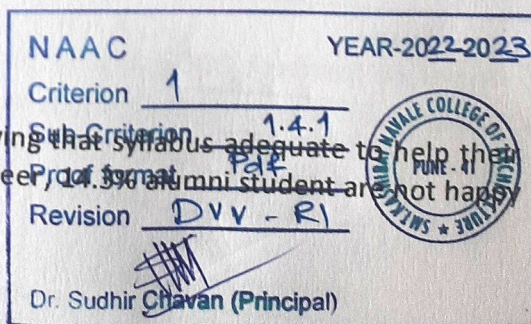 NAAC YEAR-2022-2023
Criterion 1
Sub-Crriterion 1.4.1
ing that syllabus adequate to help their
Proof format Pdf
eer, 14.3% alumni student are not happy
Revision DVV - R1
Dr. Sudhir Chavan (Principal)
NAVALE COLLEGE OF
PUNE - 41